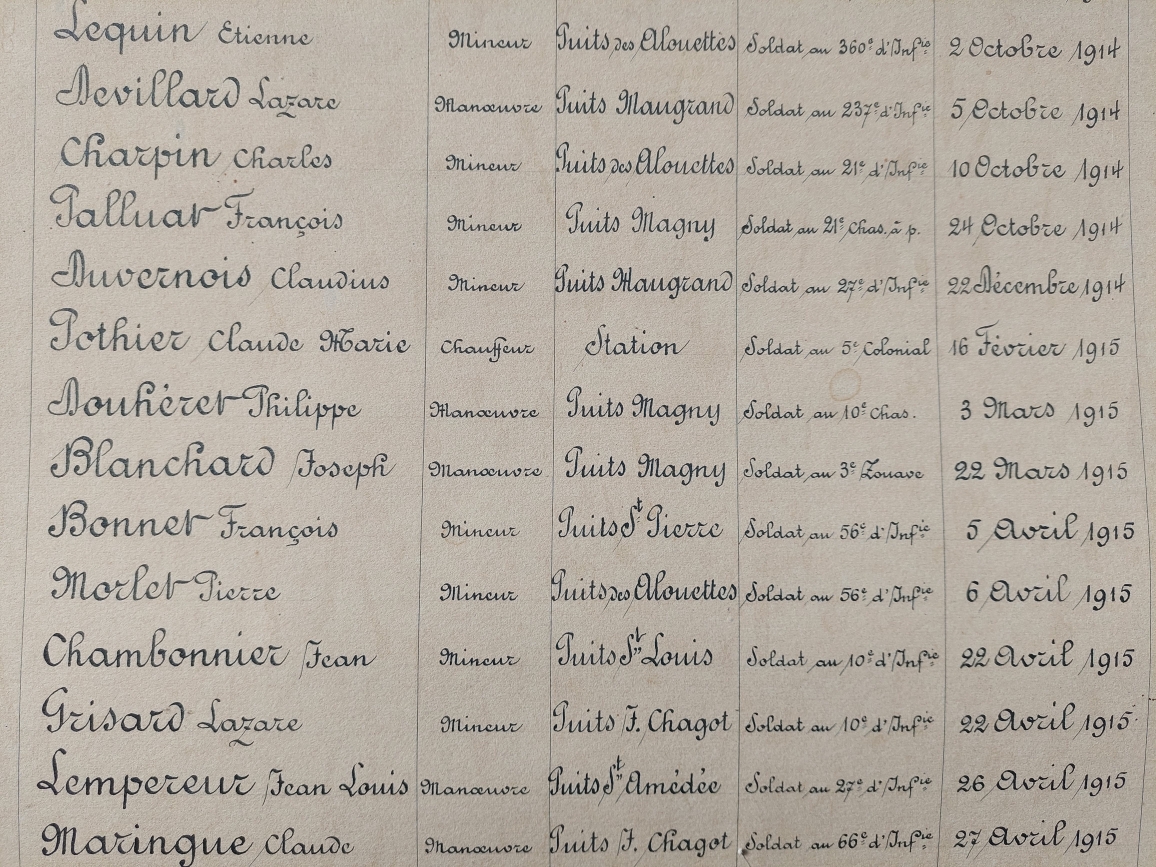 Lequin Etienne Mineur Puits des Alouettes Soldat au 360e d'Infie 2 Octobre 1914
Devillard Lazare Manœuvre Puits Maugrand Soldat au 237e d'Infie 5 Octobre 1914
Charpin Charles Mineur Puits des Alouettes Soldat au 21e d'Infie 10 Octobre 1914
Palluat François Mineur Puits Magny Soldat au 21e Chas. à p. 24 Octobre 1914
Duvernois Claudius Mineur Puits Maugrand Soldat au 27e d'Infie 22 Décembre 1914
Pothier Claude Marie Chauffeur Station Soldat au 5e Colonial 16 Février 1915
Douhéret Philippe Manœuvre Puits Magny Soldat au 10e Chas. 3 Mars 1915
Blanchard Joseph Manœuvre Puits Magny Soldat au 3e Zouave 22 Mars 1915
Bonnet François Mineur Puits St Pierre Soldat au 56e d'Infie 5 Avril 1915
Morlet Pierre Mineur Puits des Alouettes Soldat au 56e d'Infie 6 Avril 1915
Chambonnier Jean Mineur Puits St Louis Soldat au 10e d'Infie 22 Avril 1915
Grisard Lazare Mineur Puits J. Chagot Soldat au 10e d'Infie 22 Avril 1915
Lempereur Jean Louis Manœuvre Puits St Amédée Soldat au 27e d'Infie 26 Avril 1915
Maringue Claude Manœuvre Puits J. Chagot Soldat au 66e d'Infie 27 Avril 1915